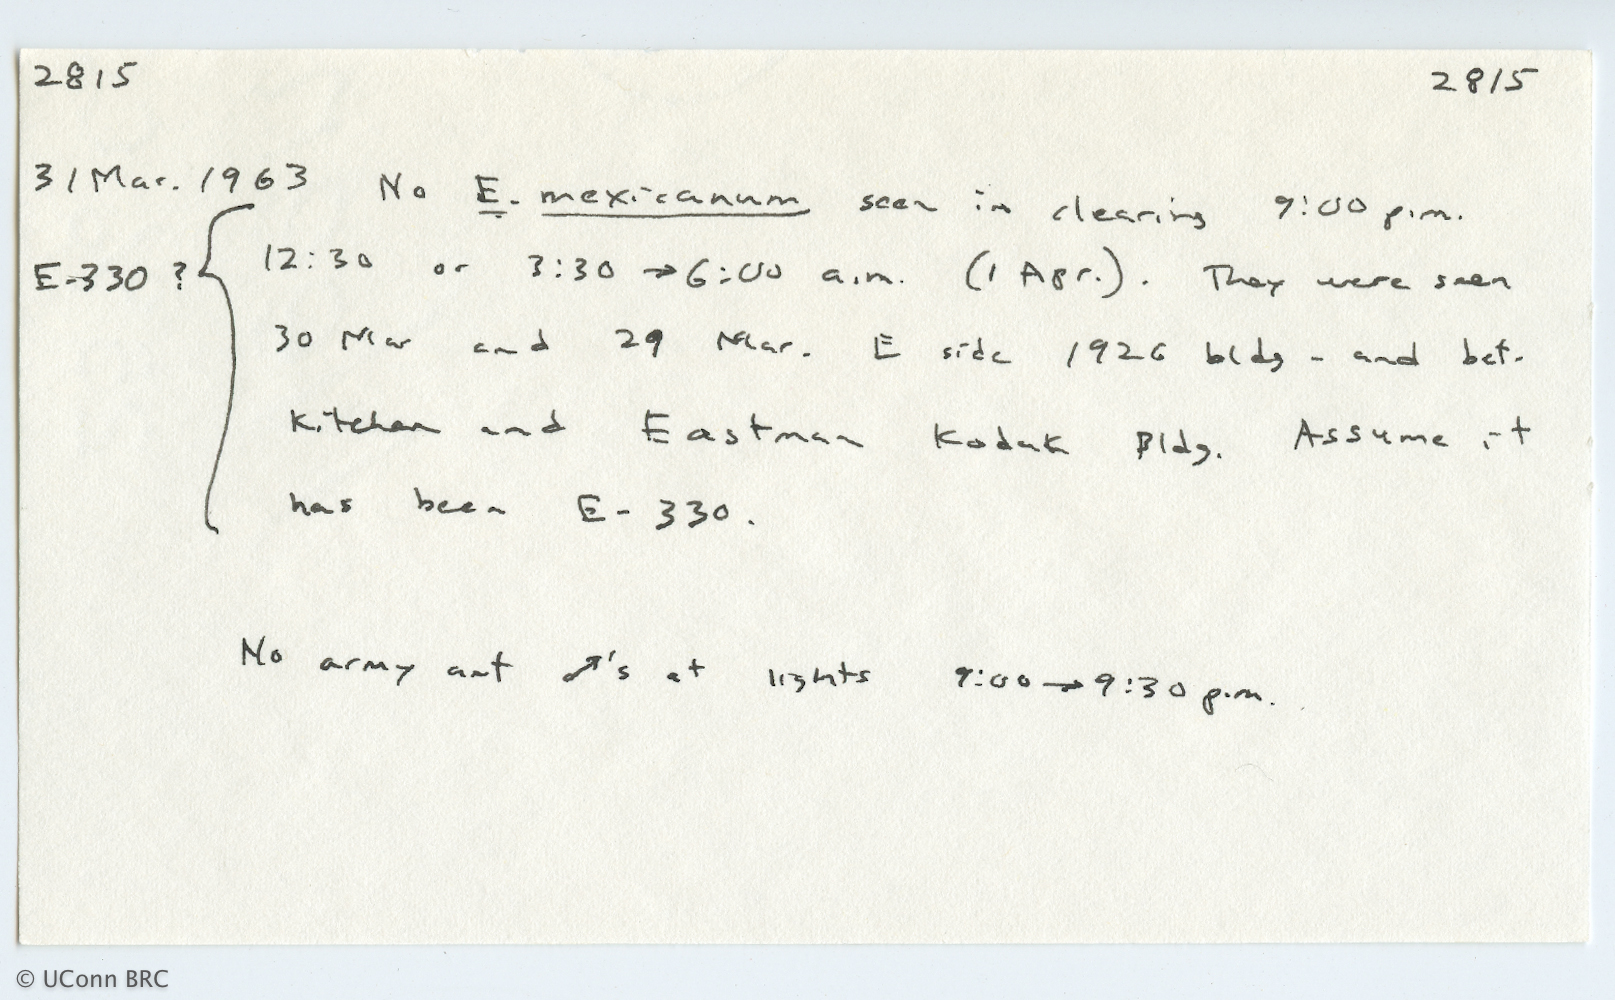 2815 2815
31 Mar. 1963 No E. mexicanum seen in clearing 9:00 p.m.
E-330 ? 12:30 or 3:30 → 6:00 a.m. (1 Apr.). They were seen
30 Mar and 29 Mar. E side 1926 bldg - and bet.
kitchen and Eastman Kodak Bldg. Assume it
has been E-330.
No army ant ♂'s at lights 9:00 → 9:30 p.m.
© UConn BRC